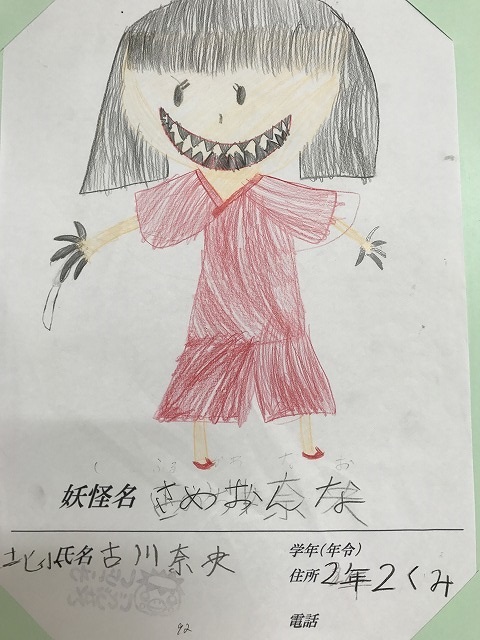 妖怪名 さめおんな
北小 氏名 古川奈央
学年(年令)
住所 2年2くみ
電話
92